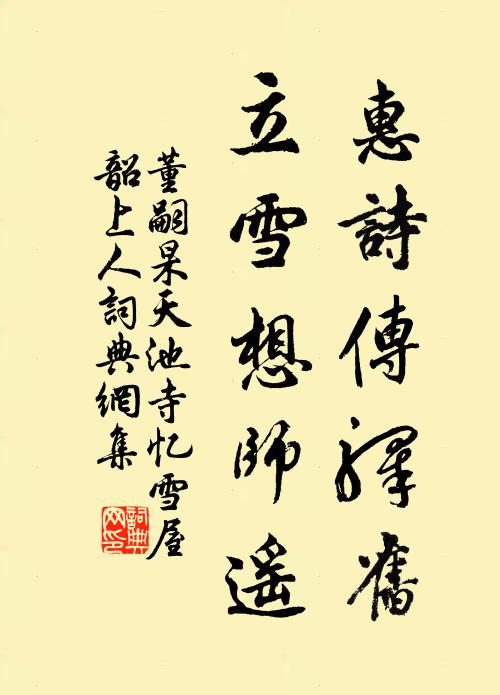 惠詩傳驛舊
立雪想師遙
董嗣杲天池寺忆雪屋
韶上人詞典網集
詞典网印